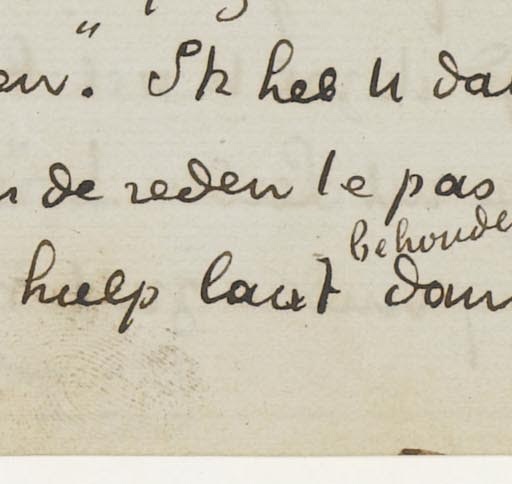 en." Ik heb U da
de reden te pas
behoude
hulp laat dan